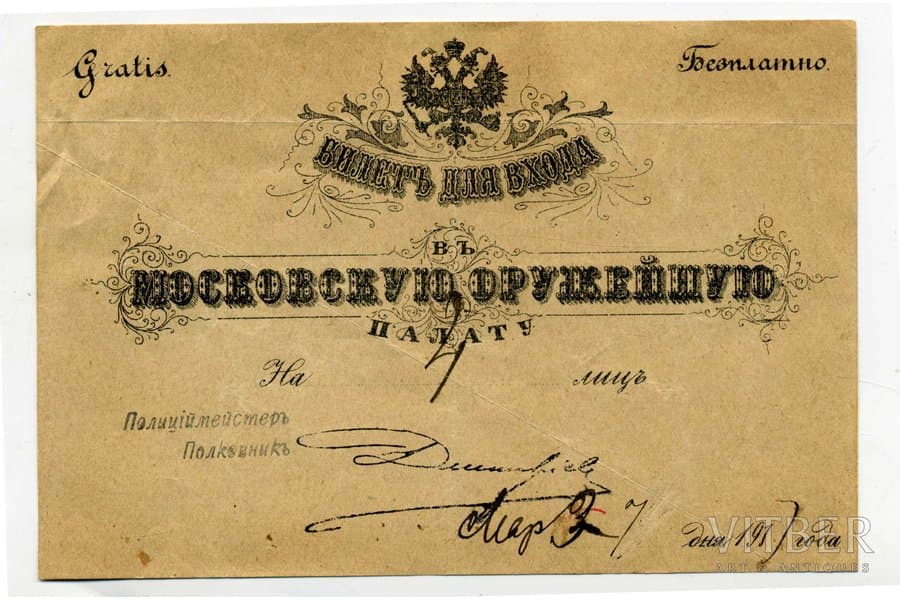 Gratis.
Безплатно.
БИЛЕТЪ ДЛЯ ВХОДА
ВЪ
МОСКОВСКУЮ ОРУЖЕЙНУЮ
ПАЛАТУ
На 2 лицъ
Полиціймейстеръ
Полковникъ
Мар
дня 1917 года
VITBER
ART & ANTIQUES